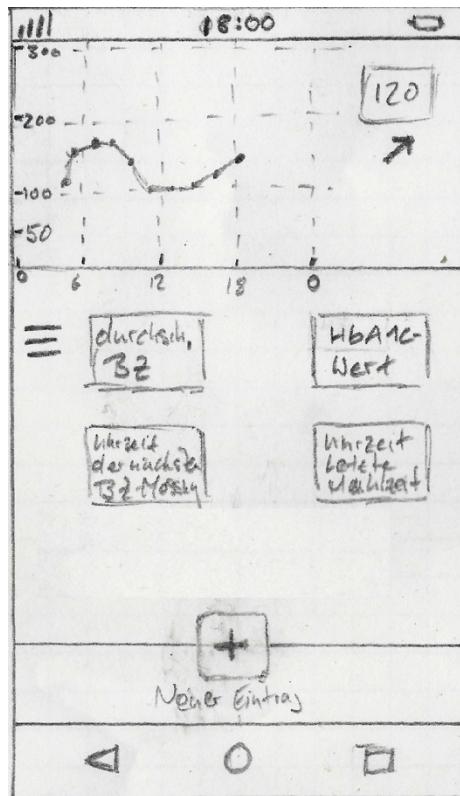 18:00
300
120
200
100
50
0 6 12 18 0
durchsch.
BZ
HbA1c-
Wert
Uhrzeit
der nächsten
BZ-Messung
Uhrzeit
letzte
Mahlzeit
+
Neuer Eintrag